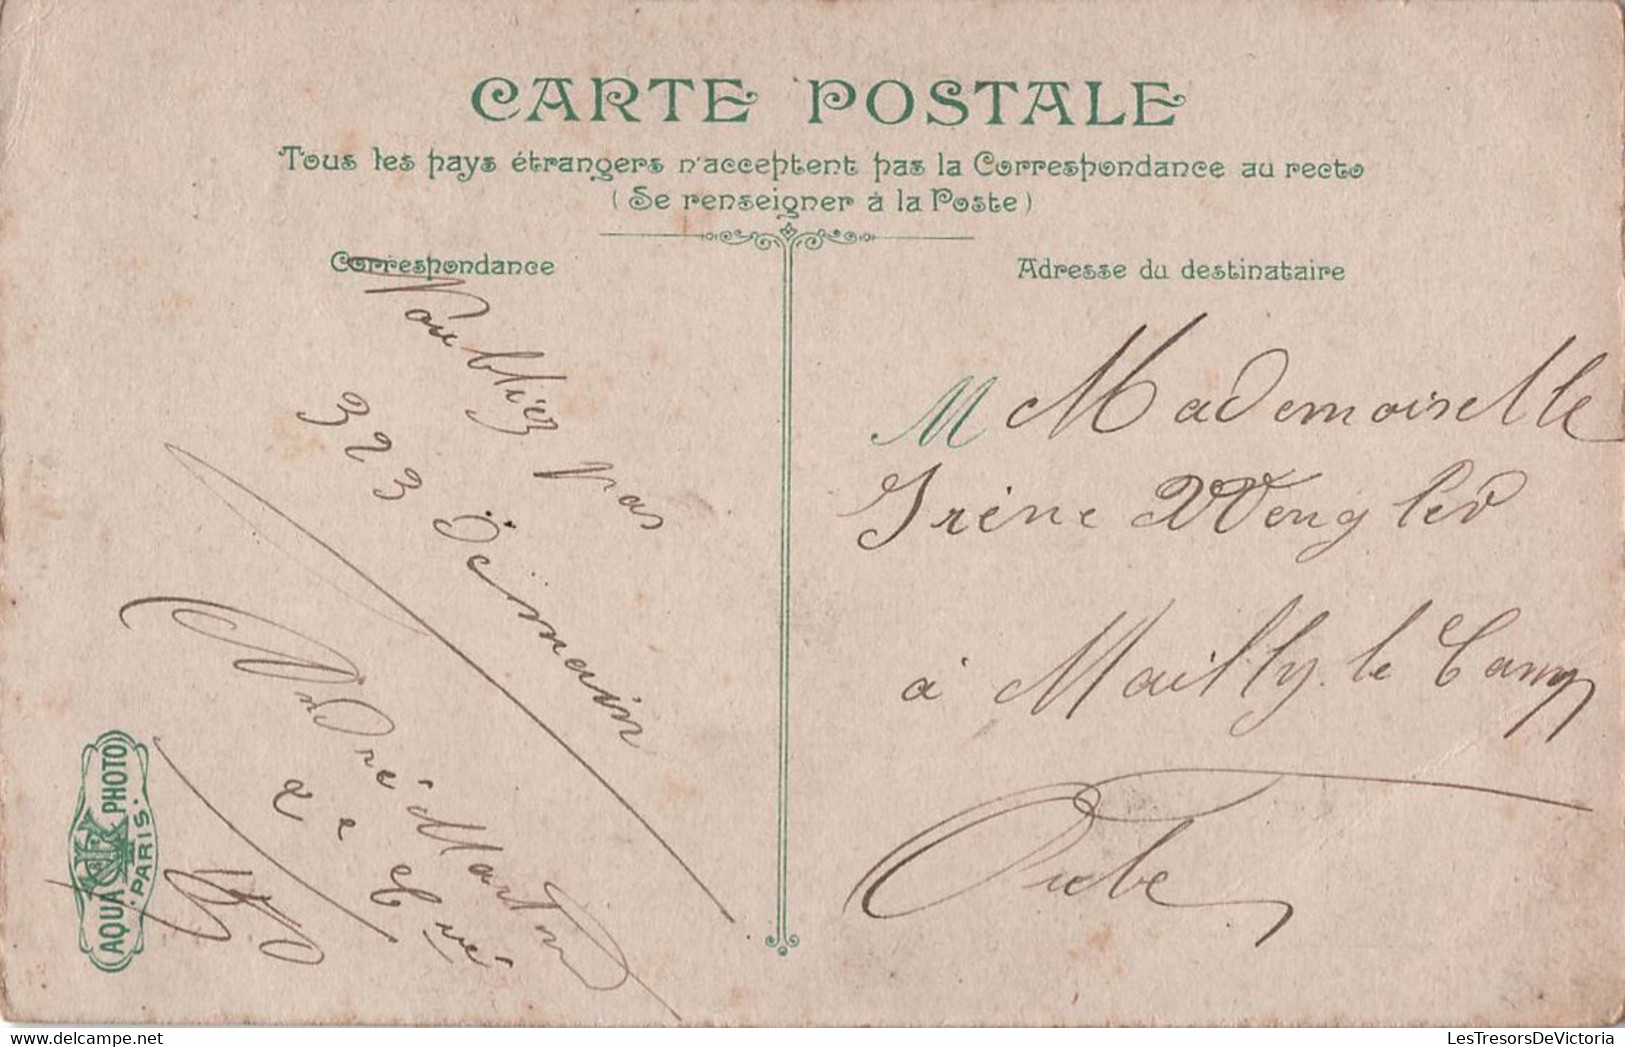 CARTE POSTALE
Tous les pays étrangers n'acceptent pas la Correspondance au recto
(Se renseigner à la Poste)
Correspondance
Noubliez pas
323 demain
André Marton
Adresse du destinataire
M Mademoiselle
Irène Wengler
à Mailly le Camp
Aube
AQUA PHOTO
PARIS
LesTresorsDeVictoria